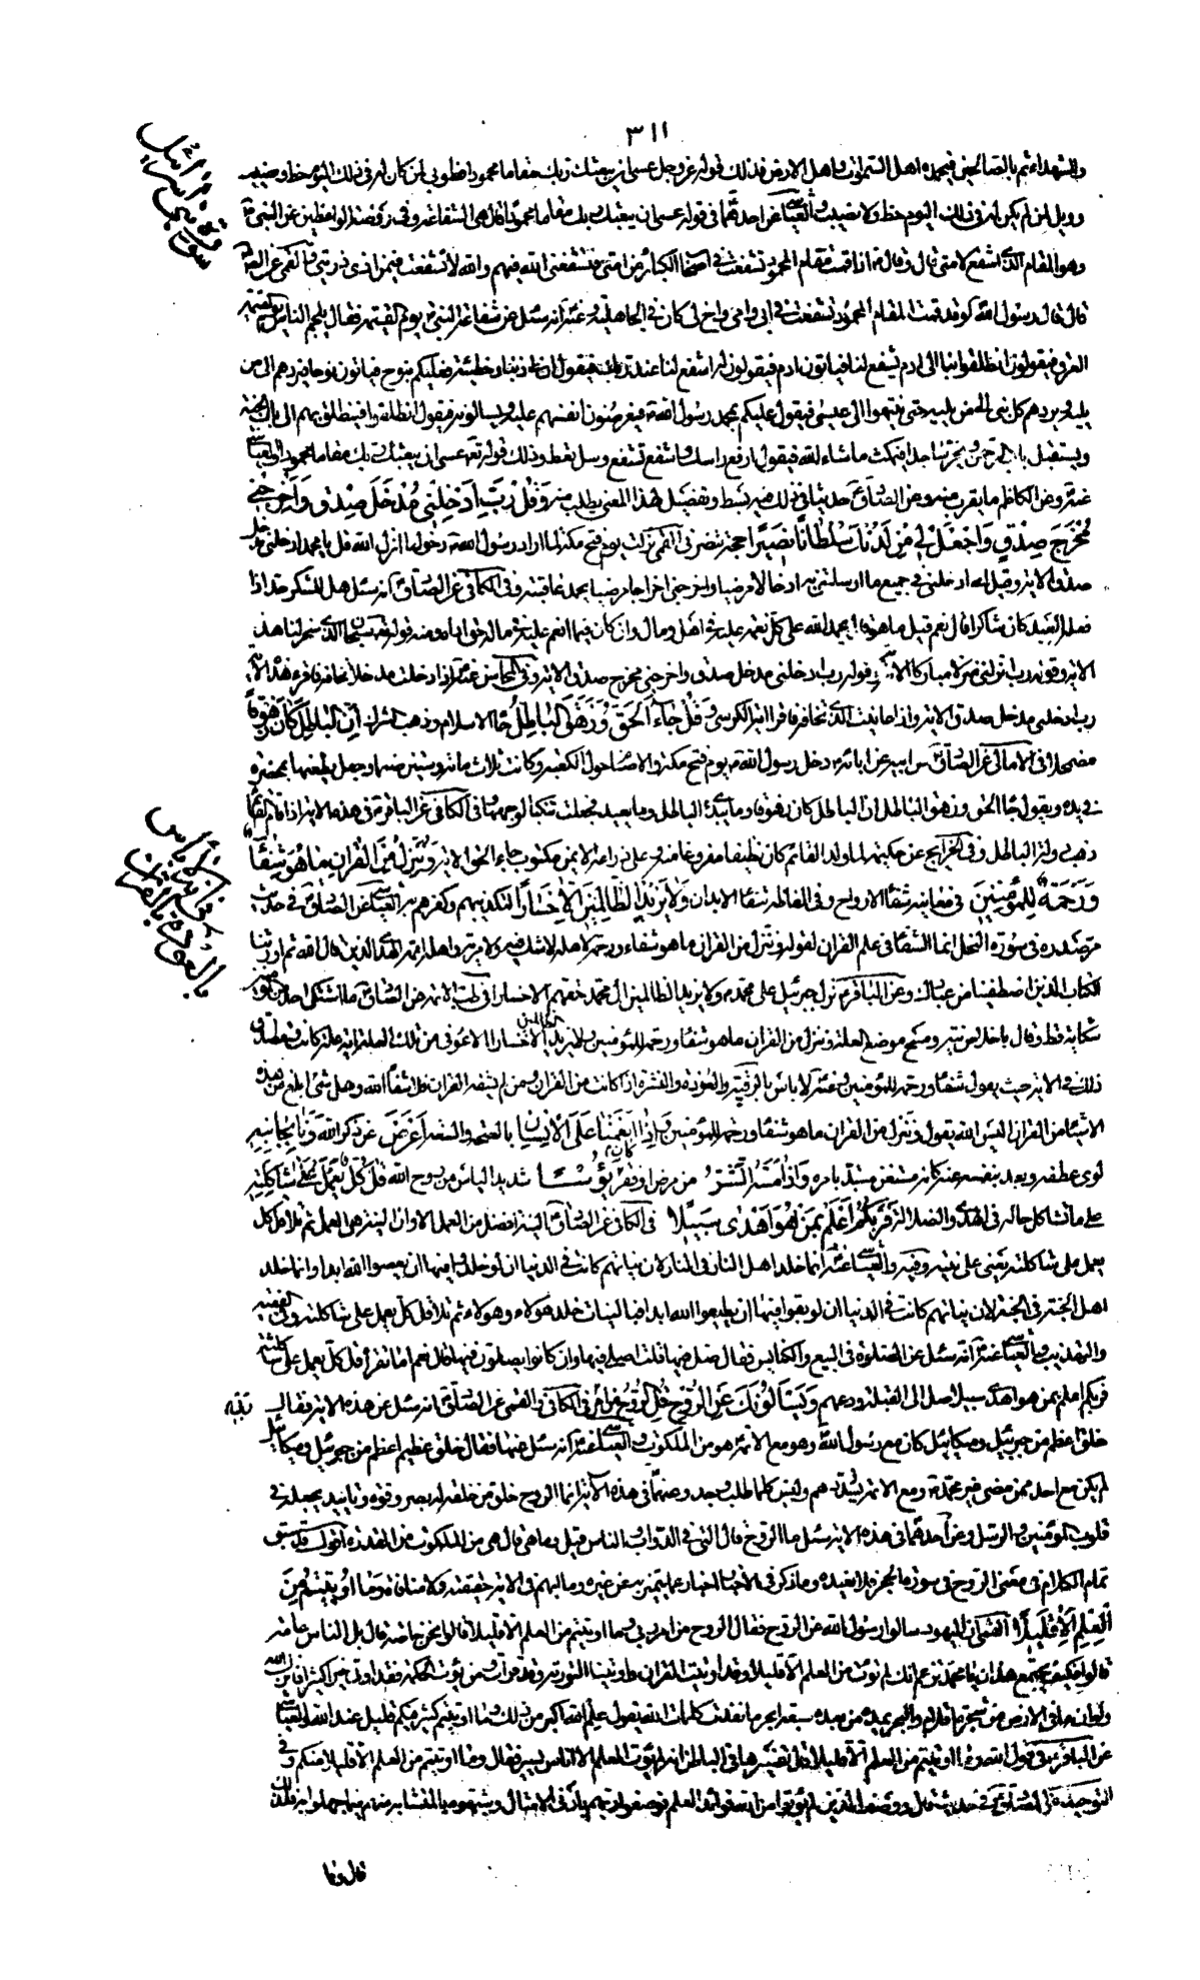 ٣١١
والشهداء ثم بالصالحين فيحمده اهل السموات واهل الارض فذلك قوله عز وجل عسى ان يبعثك ربك مقاما محمودا فطوبى لمن كان له في ذلك اليوم حظ ونصيب
وويل لمن لم يكن له في ذلك اليوم حظ ولا نصيب والعياشي عن احدهما في قوله عسى ان يبعثك ربك مقاما محمودا قال هي الشفاعة وفي روضة الواعظين عن النبي
وهو المقام الذي اشفع لامتي قال وقال اذا قمت المقام المحمود تشفعت في اصحاب الكبائر من امتي فيشفعني الله فيهم والله لا تشفعت فيمن اذى ذريتي والقمي عن
قال قال رسول الله لو قد قمت المقام المحمود لشفعت في ابي وامي واخ لي كان في الجاهلية وعنه انه سئل عن شفاعة النبي يوم القيمة فقال يلجم الناس يوم القيمة
العرق فيقولون انطلقوا بنا الى ادم يشفع لنا فياتون ادم فيقولون له اشفع لنا عند ربك فيقول ان لي ذنبا وخطيئة فعليكم بنوح فياتون نوحا فيردهم الى من
يليه ويردهم كل نبي الى من يليه حتى ينتهوا الى عيسى فيقول عليكم بمحمد رسول الله فيعرضون انفسهم عليه ويسالونه فيقول انطلقوا فينطلق بهم الى باب الجنة
ويستقبل باب الرحمن ويخر ساجدا فيمكث ما شاء الله فيقول ارفع راسك واشفع تشفع وسل تعط وذلك قوله تعالى عسى ان يبعثك ربك مقاما محمودا والعياشي
عنه وعن الكاظم ما يقرب منه وعن الصادق حديثا في ذلك فيه بسط وتفصيل لهذا المعنى يطلب منه وَقُلْ رَبِّ اَدْخِلْنِي مُدْخَلَ صِدْقٍ وَاَخْرِجْنِي
مُخْرَجَ صِدْقٍ وَاجْعَلْ لِي مِنْ لَدُنْكَ سُلْطَانًا نَصِيرًا حجة تنصرني القمي نزلت يوم فتح مكة لما اراد رسول الله دخولها انزل الله قل يا محمد ادخلني مدخل
صدق الاية وقيل اي ادخلني في جميع ما ارسلتني به ادخالا مرضيا واخرجني اخراجا مرضيا يحمد عاقبته وفي الكافي عن الصادق انه سئل هل للشكر حد اذا
فعله العبد كان شاكرا قال نعم قيل ما هو قال يحمد الله على كل نعمة عليه في اهل ومال وان كان فيما انعم عليه في ماله حق اداه ومنه قوله سبحان الذي سخر لنا هذا
الاية وقوله رب انزلني منزلا مباركا الاية وقوله رب ادخلني مدخل صدق واخرجني مخرج صدق الاية وفي المحاسن عنه اذا دخلت مدخلا تخافه فاقرء هذه الاية
رب ادخلني مدخل صدق الاية واذا عاينت الذي تخافه فاقرا اية الكرسي وَقُلْ جَاءَ الْحَقُّ وَزَهَقَ الْبَاطِلُ جاء الاسلام وذهب الشرك اِنَّ الْبَاطِلَ كَانَ زَهُوقًا
مضمحلا في الامالي عن الصادق عن ابيه عن ابائه دخل رسول الله يوم فتح مكة والاصنام حول الكعبة وكانت ثلاث مائة وستين صنما وجعل يطعنها بمخصرة
في يده ويقول جاء الحق وزهق الباطل ان الباطل كان زهوقا وما يبدئ الباطل وما يعيد فجعلت تنكب لوجهها وفي الكافي عن الباقر في هذه الاية اذا قام القائم
ذهبت دولة الباطل وفي الخرايج عن حكيمة لما ولد القائم كان نظيفا مفروغا منه وعلى ذراعه الايمن مكتوب جاء الحق الاية وَنُنَزِّلُ مِنَ الْقُرْاٰنِ مَا هُوَ شِفَاءٌ
وَرَحْمَةٌ لِلْمُؤْمِنِينَ في معانيه شفاء الارواح وفي الفاظه شفاء الابدان وَلَا يَزِيدُ الظَّالِمِينَ اِلَّا خَسَارًا لتكذيبهم وكفرهم به العياشي عن الصادق في حديث
مر صدره في سورة النحل انما الشفاء في علم القران لقوله وننزل من القران ما هو شفاء ورحمة لاهله لا شك فيه ولا مرية واهله ائمة الهدى الذين قال الله ثم اورثنا
الكتاب الذين اصطفينا من عبادنا وعن الباقر نزل جبرئيل على محمد ولا يزيد الظالمين ال محمد حقهم الا خسارا في طب الائمة عن الصادق ما اشتكى احد من المؤمنين
شكاية قط وقال باخلاص نية ومسح موضع العلة وننزل من القران ما هو شفاء ورحمة للمؤمنين ولا يزيد الظالمين الا خسارا الا عوفي من تلك العلة اية علة كانت ومصداق
ذلك في الاية حيث يقول شفاء ورحمة للمؤمنين وعنه لا باس بالرقية والعوذة والنشرة اذا كانت من القران ومن لم يشفه القران فلا شفاه الله وهل شئ ابلغ من هذه
الاشياء من القران اليس الله يقول وننزل من القران ما هو شفاء ورحمة للمؤمنين وَاِذَا اَنْعَمْنَا عَلَى الْاِنْسَانِ بالصحة والسعة اَعْرَضَ عن ذكر الله وَنَاٰى بِجَانِبِهِ
لوى عطفه وبعد بنفسه عنه كانه مستغن مستبد بامره وَاِذَا مَسَّهُ الشَّرُّ من مرض او فقر كَانَ يَؤُسًا شديد الياس من روح الله قُلْ كُلٌّ يَعْمَلُ عَلَى شَاكِلَتِهِ
على ما تشاكل حاله في الهدى والضلالة فَرَبُّكُمْ اَعْلَمُ بِمَنْ هُوَ اَهْدٰى سَبِيلًا في الكافي عن الصادق النية افضل من العمل الا وان النية هي العمل ثم تلا قل كل
يعمل على شاكلته يعني على نيته وفيه والعياشي عنه انما خلد اهل النار في النار لان نياتهم كانت في الدنيا ان لو خلدوا فيها ان يعصوا الله ابدا وانما خلد
اهل الجنة في الجنة لان نياتهم كانت في الدنيا ان لو بقوا فيها ان يطيعوا الله ابدا فبالنيات خلد هؤلاء وهؤلاء ثم تلا قل كل يعمل على شاكلته وفي الفقيه
والتهذيب والعياشي عنه انه سئل عن الصلوة في البيع والكنايس فقال صل فيها قلت اصلي فيها وان كانوا يصلون فيها قال نعم اما تقرا قل كل يعمل على شاكلته
فربكم اعلم بمن هو اهدى سبيلا صل الى القبلة ودعهم وَيَسْاَلُونَكَ عَنِ الرُّوحِ قُلِ الرُّوحُ مِنْ اَمْرِ رَبِّي في الكافي والقمي عن الصادق انه سئل عن هذه الاية فقال
خلق اعظم من جبرئيل وميكائيل كان مع رسول الله وهو مع الائمة وهو من الملكوت والعياشي عنه انه سئل عنها فقال خلق عظيم اعظم من جبرئيل وميكائيل
لم يكن مع احد ممن مضى غير محمد ومع الائمة يسددهم وليس كلما طلب وجد وعنهما في هذه الاية انما الروح خلق من خلقه له بصر وقوة وتاييد يجعله في
قلوب المؤمنين والرسل وعن احدهما في هذه الاية سئل ما الروح قال التي في الدواب والناس قيل وما هي قال هي من الملكوت من القدرة اقول قد سبق
تمام الكلام في معنى الروح في سورة الحجر فلا نعيده وما ذكر في الاخبار
الْعِلْمِ اِلَّا قَلِيلًا القمي ان اليهود سالوا رسول الله عن الروح فقال الروح من امر ربي وما اوتيتم من العلم الا قليلا قالوا نحن خاصة قال بل الناس عامة
قالوا فكيف يجتمع هذان يا محمد تزعم انك لم تؤت من العلم الا قليلا وقد اوتيت القران واوتينا التورية وقد قرات ومن يؤت الحكمة فقد اوتي خيرا كثيرا فانزل الله
ولو ان ما في الارض من شجرة اقلام والبحر يمده من بعده سبعة ابحر ما نفدت كلمات الله يقول علم الله اكبر من ذلك وما اوتيتم كثير فيكم قليل عند الله والعياشي
عن الباقر في قول الله وما اوتيتم من العلم الا قليلا قال تفسيرها في الباطن انه لم يؤت العلم الا اناس يسير فقال وما اوتيتم من العلم الا قليلا منكم وفي
التوحيد عن الصادق في حديث
قال وما